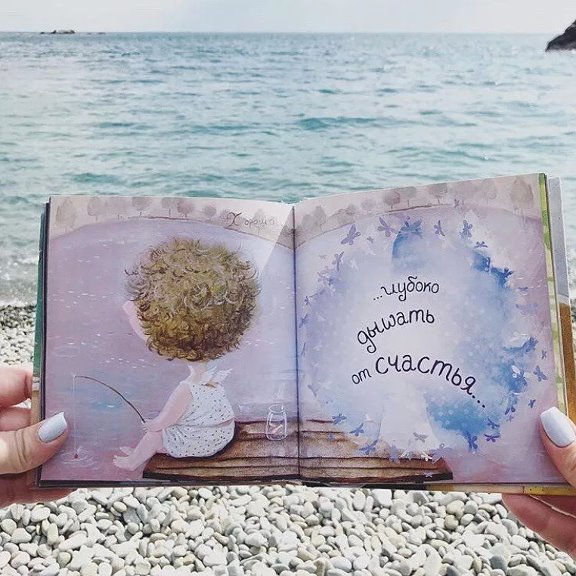 Хорошо
...глубоко
дышать
от счастья...